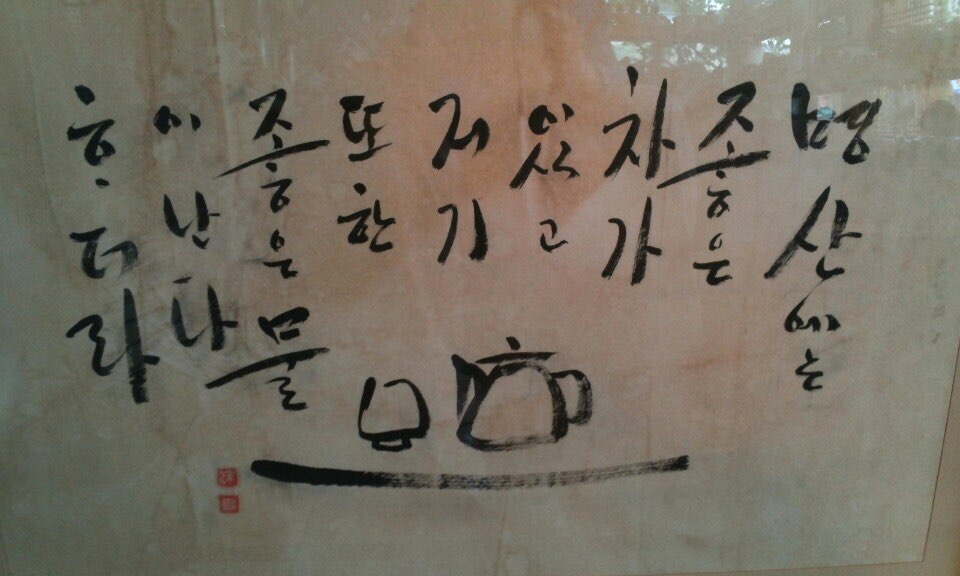 명산에는
좋은
차가
있고
저기
또한
좋은물
이난다
ᄒᆞ더라